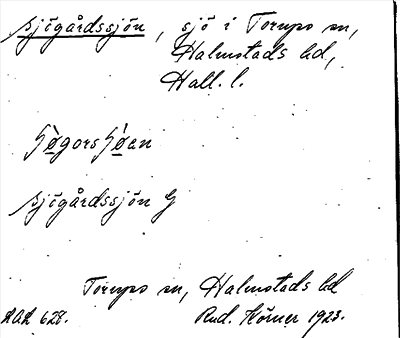 Sjögårdssjön, sjö i Torups sn,
Halmstads hd,
Hall. l.
Sjögårdssjön G
Torups sn, Halmstads hd
AOA 628. Rud. Körner 1923.